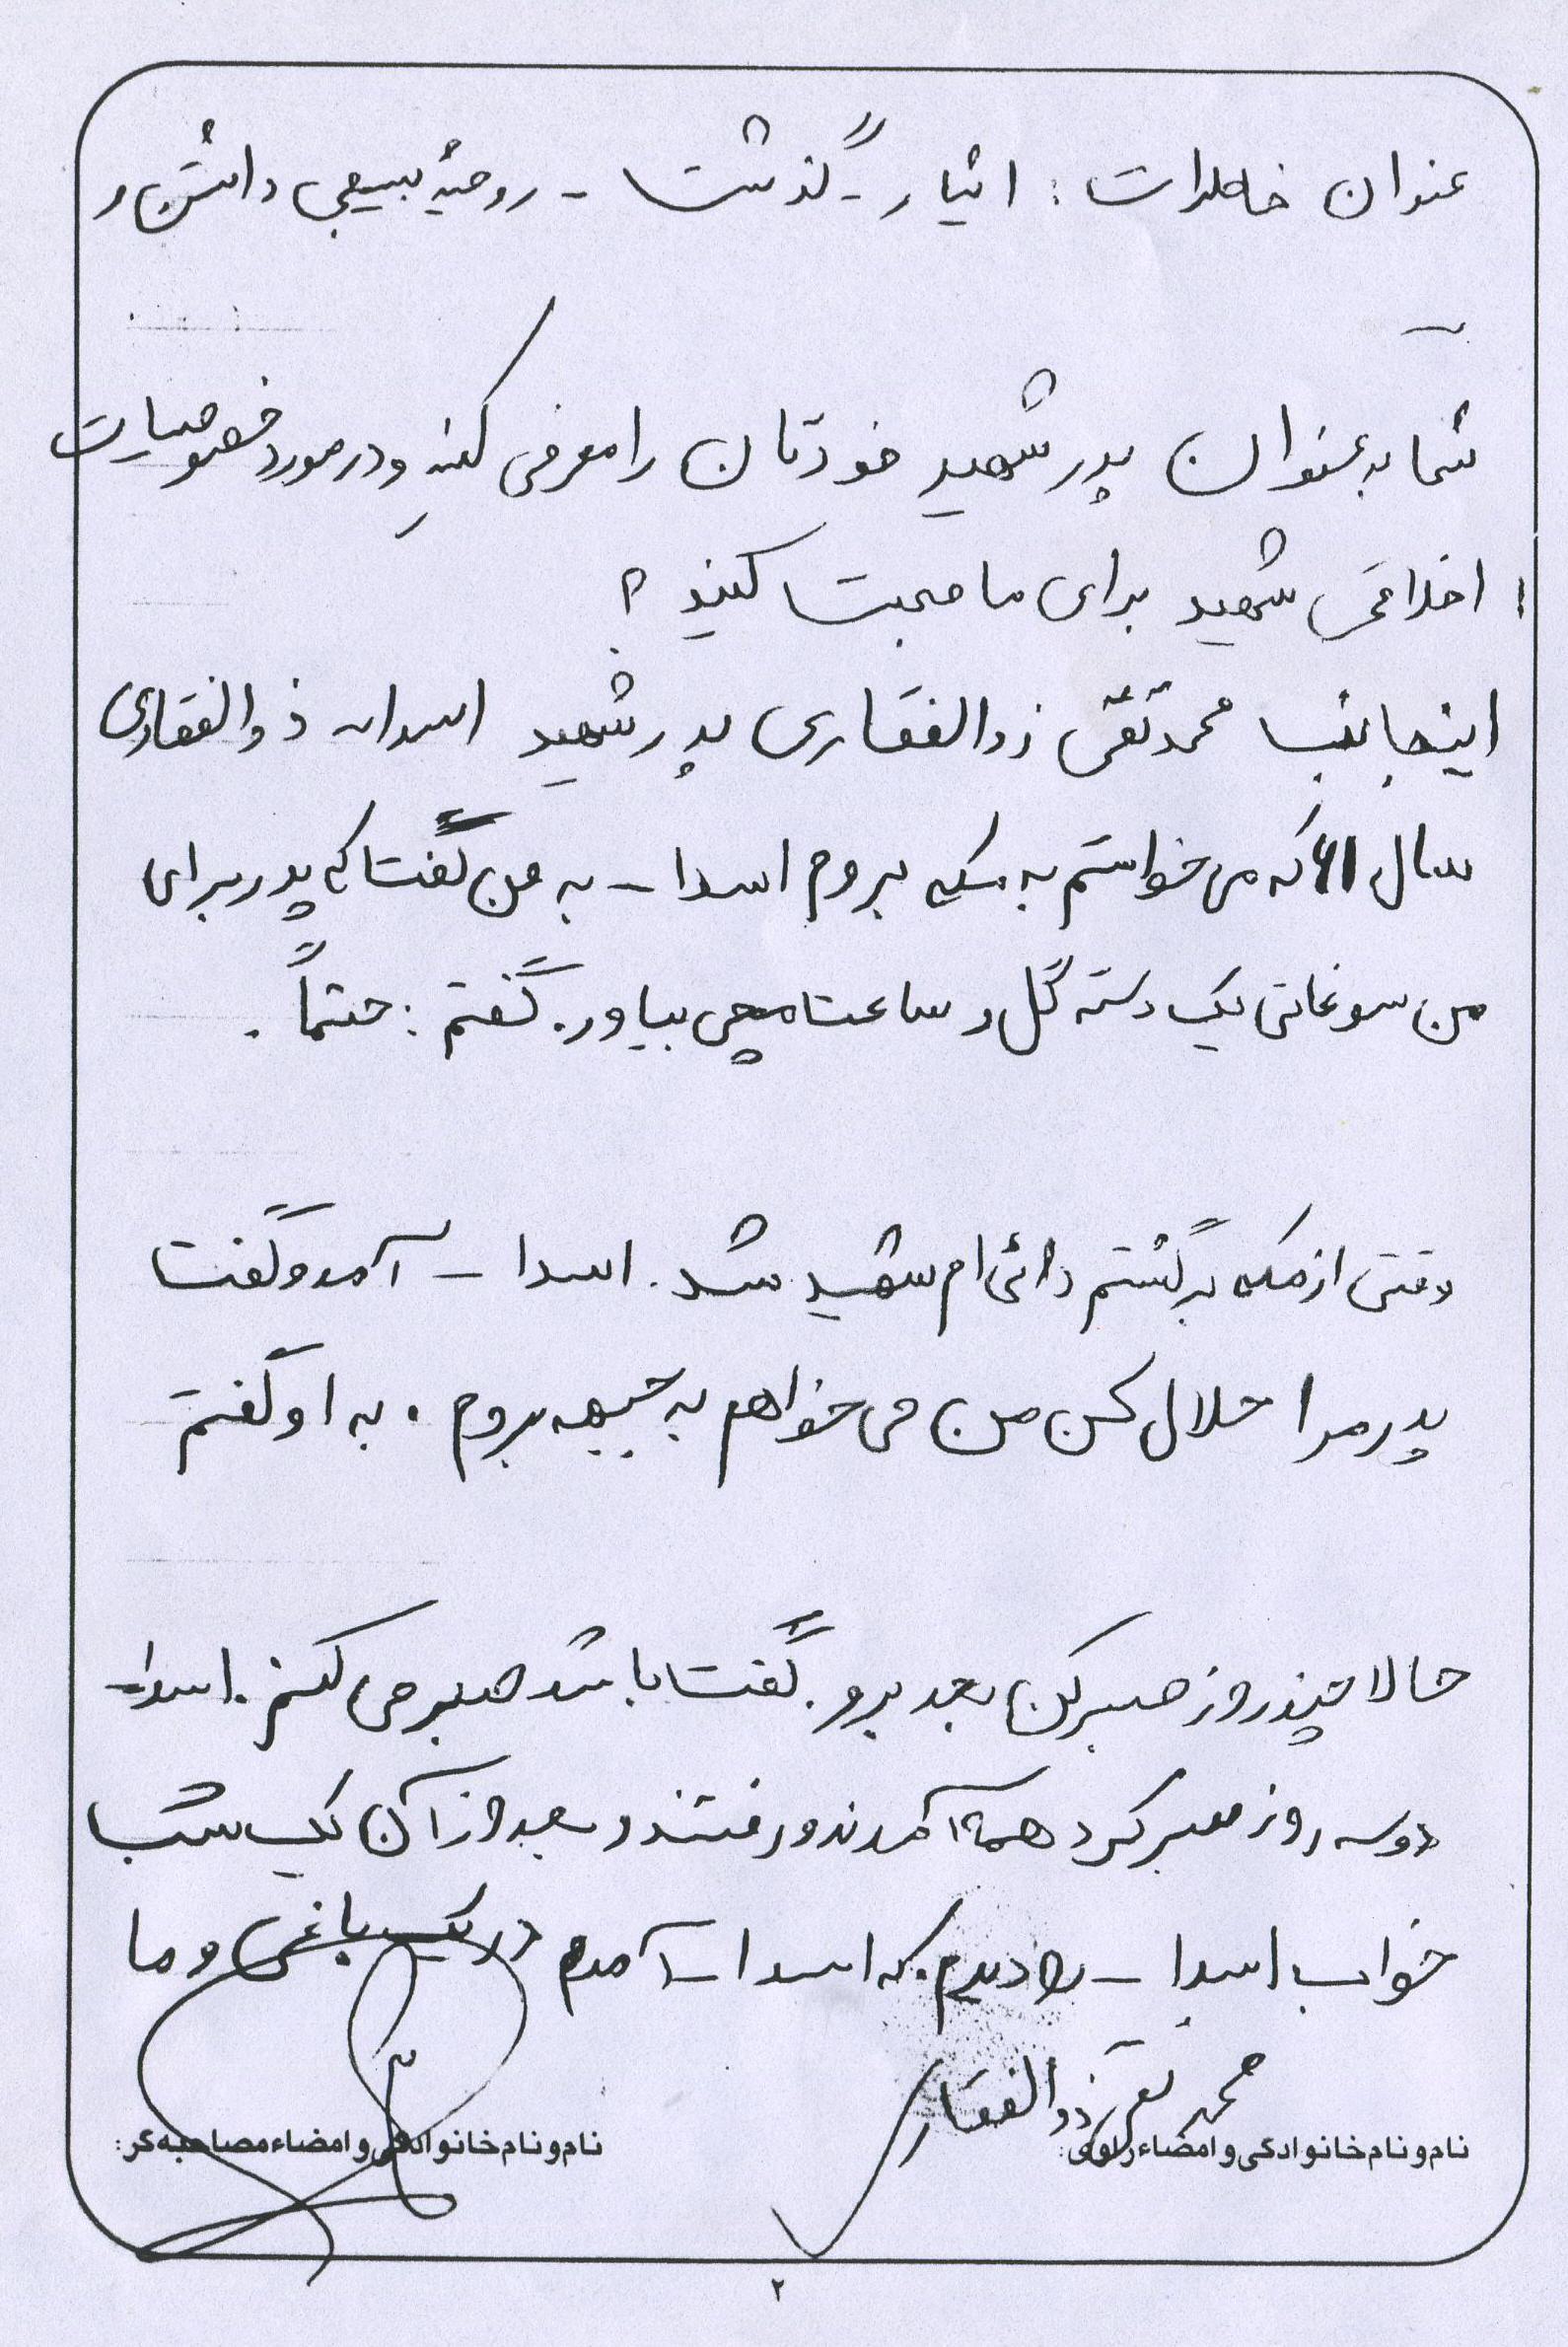 عنوان خاطرات : ایثار - گذشت - روحیه بسیجی داشتن و
شما به عنوان پدر شهید خودتان را معرفی کنید و در مورد خصوصیات
اخلاقی شهید برای ما صحبت کنید ؟
اینجانب محمد تقی ذوالفقاری پدر شهید اسداله ذوالفقاری
سال ۶۱ که می خواستم به مکه بروم اسدا... به من گفت که پدر برای
من سوغاتی یک دسته گل و ساعت مچی بیاور. گفتم : حتماً .
وقتی از مکه برگشتم دائی ام شهید شد . اسدا... آمد و گفت
پدر مرا حلال کن من می خواهم به جبهه بروم . به او گفتم
حالا چند روز صبر کن بعد برو . گفت باشد صبر می کنم . اسدا...
دو سه روز صبر کرد همه آمدند و رفتند و بعد از آن یک شب
خواب اسدا... را دیدم که اسدا... آمدم در یک باغی و ما
محمد تقی ذوالفقار
نام و نام خانوادگی و امضاء راوی:
نام و نام خانوادگی و امضاء مصاحبه گر:
۲